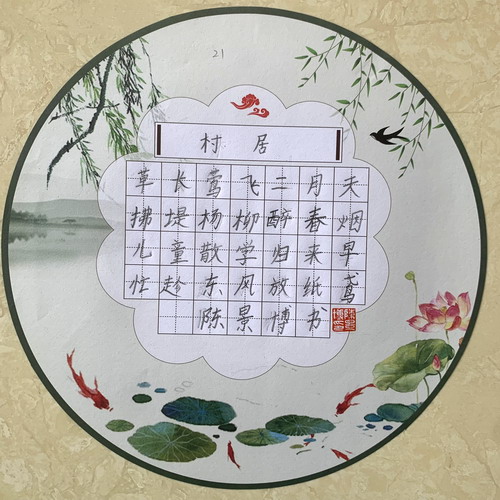 21
村居
草长莺飞二月天
拂堤杨柳醉春烟
儿童散学归来早
忙趁东风放纸鸢
陈景博书